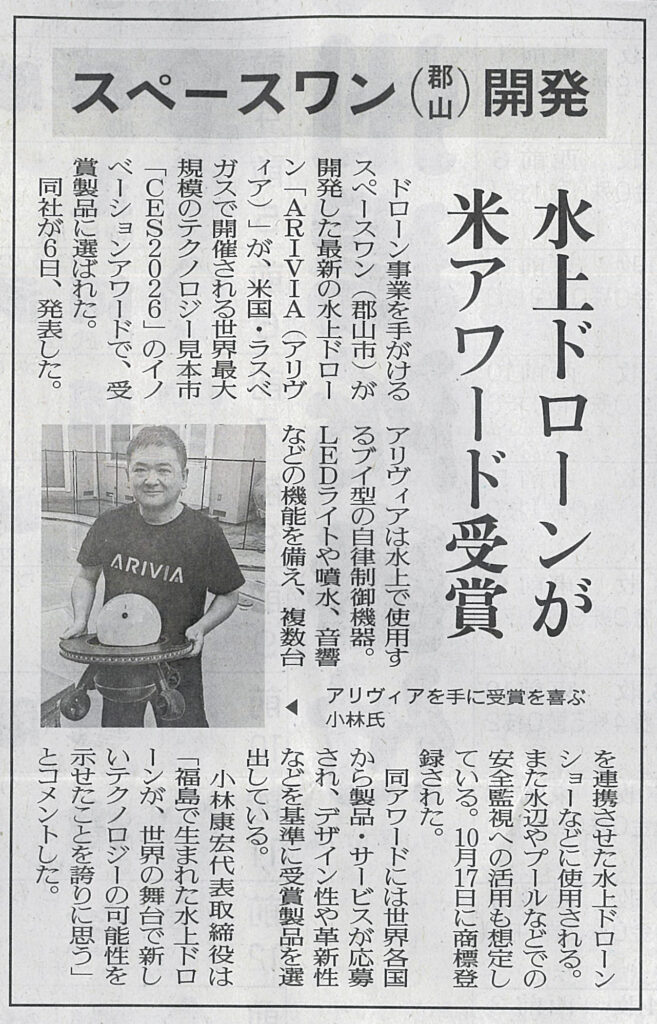 スペースワン（郡山）開発
水上ドローンが
米アワード受賞
ドローン事業を手がける
スペースワン（郡山市）が
開発した最新の水上ドロー
ン「ARIVIA（アリヴ
ィア）」が、米国・ラスベ
ガスで開催される世界最大
規模のテクノロジー見本市
「CES2026」のイノ
ベーションアワードで、受
賞製品に選ばれた。
同社が6日、発表した。
アリヴィアは水上で使用す
るブイ型の自律制御機器。
LEDライトや噴水、音響
などの機能を備え、複数台
ARIVIA
◀
アリヴィアを手に受賞を喜ぶ
小林氏
を連携させた水上ドローン
ショーなどに使用される。
また水辺やプールなどでの
安全監視への活用も想定し
ている。10月17日に商標登
録された。
同アワードには世界各国
から製品・サービスが応募
され、デザイン性や革新性
などを基準に受賞製品を選
出している。
小林康宏代表取締役は
「福島で生まれた水上ドロ
ーンが、世界の舞台で新し
いテクノロジーの可能性を
示せたことを誇りに思う」
とコメントした。